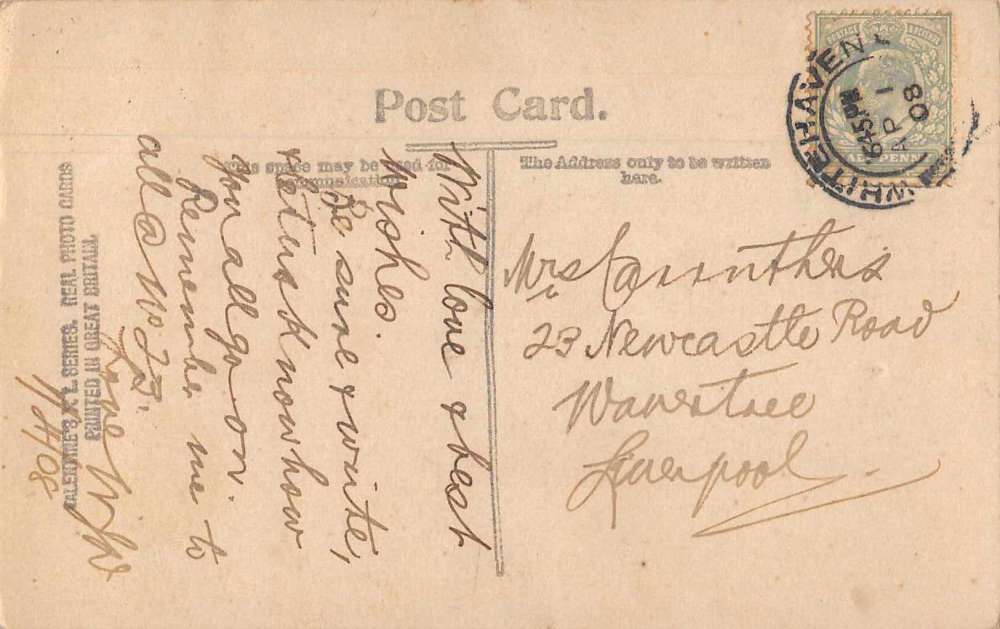 Post Card.
This space may be used for
communication
The Address only to be written
here.
WHITEHAVEN
6.45 PM
AP 1
08
HALFPENNY
With love & best
wishes.
Be sure & write,
& let us know how
you all go on.
Remember me to
all @ No 23.
Love
1/4/08
Mrs Carruthers
23 Newcastle Road
Wavertree
Liverpool
VALENTINE'S X L SERIES. REAL PHOTO CARDS
PRINTED IN GREAT BRITAIN.